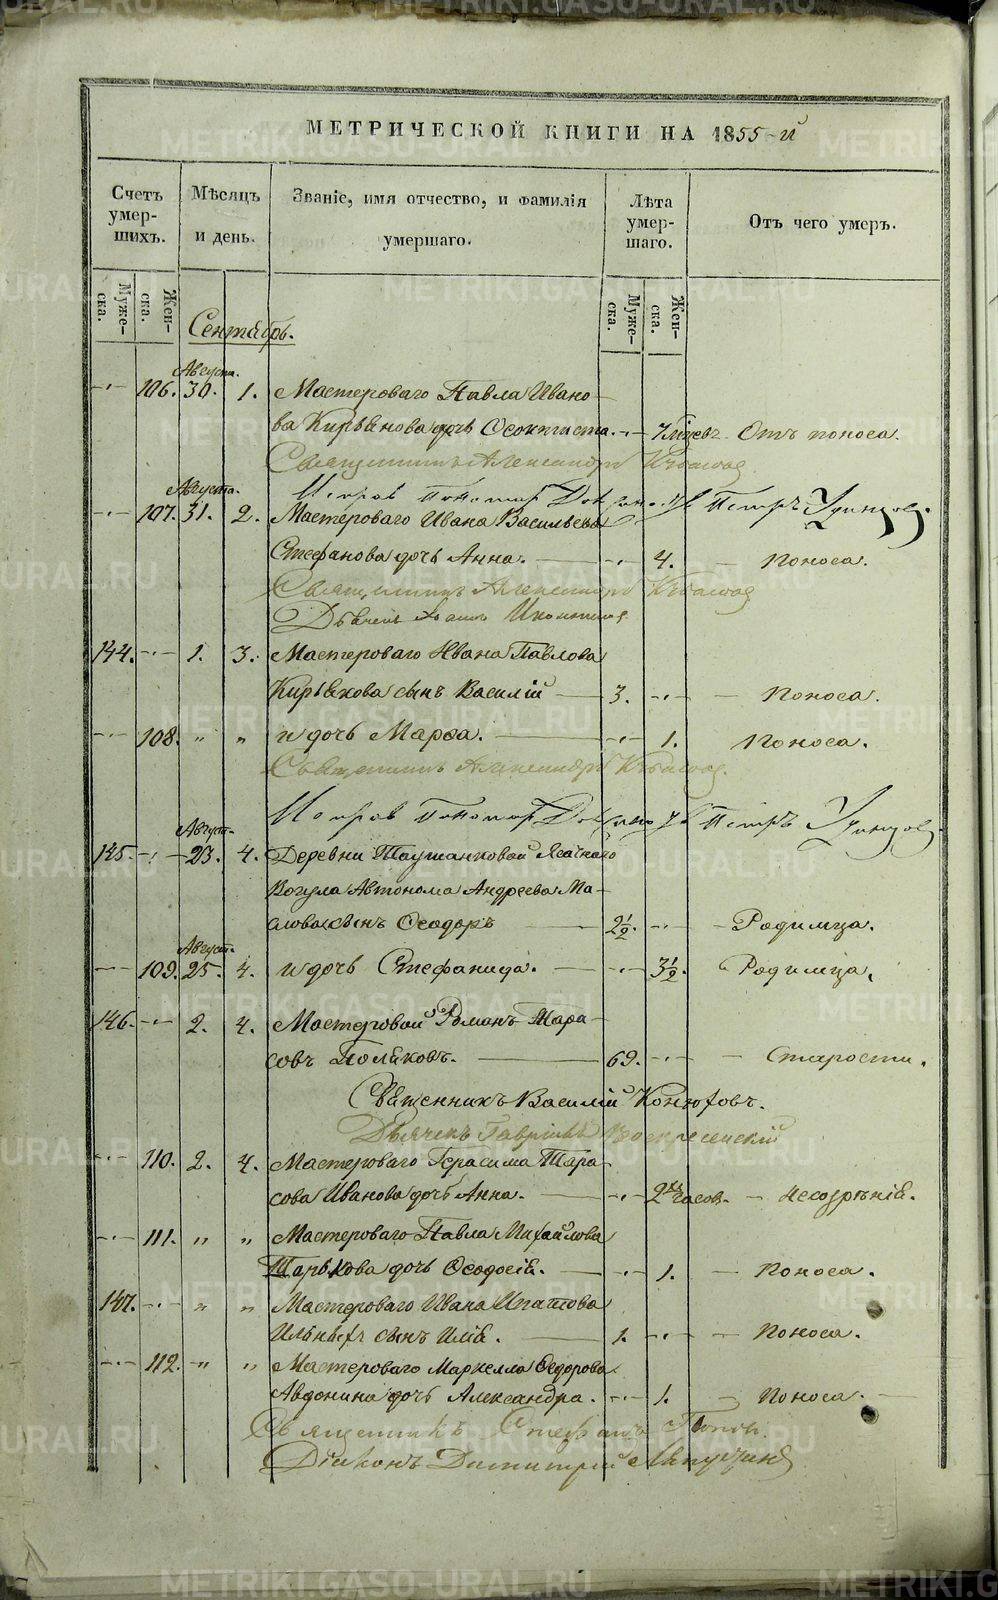 МЕТРИЧЕСКОЙ КНИГИ НА 1855-й
Счетъ умер-шихъ. Мѣсяцъ и день. Званіе, имя отчество, и фамилія умершаго. Лѣта умер-шаго. Отъ чего умеръ.
Муже-ска. Жен-ска. Муже-ска. Жен-ска.
Сентябрь.
Августа.
-·- 106. 30. 1. Мастероваго Павла Ивано-
ва Кирьякова дочь -·- 7 Отъ поноса.
Священникъ Александръ
Августа.
Пономар Петръ Удинцовъ.
-·- 107. 31. 2. Мастероваго Ивана Васильева
Стефанова дочь Анна. -·- 4. - Поноса.
Священникъ Александръ
Дьячекъ Іоаннъ
144. -·- 1. 3. Мастероваго Ивана Павлова
Кирьякова сынъ Василій - 3. -·- - Поноса.
-·- 108. " " и дочь Марѳа. -·- 1. Поноса.
Священникъ Александръ
Пономар Петръ Удинцовъ.
Август.
145. -·- 23. 4. Деревни Таушанковой Ясачнаго
Вогула Автонома Андреева Ма-
сынъ Ѳеодоръ - 2½. -·- - Родимца.
Август.
-·- 109. 25. 4. и дочь Стефанида. - -·- 3½. Родимца.
146. -·- 2. 4. Мастеровой Романъ Тара-
совъ Поляковъ. - 69. -·- - Старости.
Священникъ Василій Конюховъ.
Дьячекъ Гавріилъ Воскресенскій
-·- 110. 2. 4. Мастероваго Герасима Тара-
сова Иванова дочь Анна. - -·- 2хъ часов. - Несозрѣнія.
-·- 111. " " Мастероваго Павла Михайлова
Ширькова дочь Ѳеодосія. - -·- 1. - Поноса.
147. -·- " " Мастероваго Ивана Ипатова
Ильиных сынъ Илія. - 1. -·- - Поноса.
-·- 112. " " Мастероваго Маркелла Ѳедорова
Авдонина дочь Александра. -·- 1. - Поноса.
Священникъ Стефанъ Поповъ.
Діаконъ Димитрій
METRIKI.GASO-URAL.RU